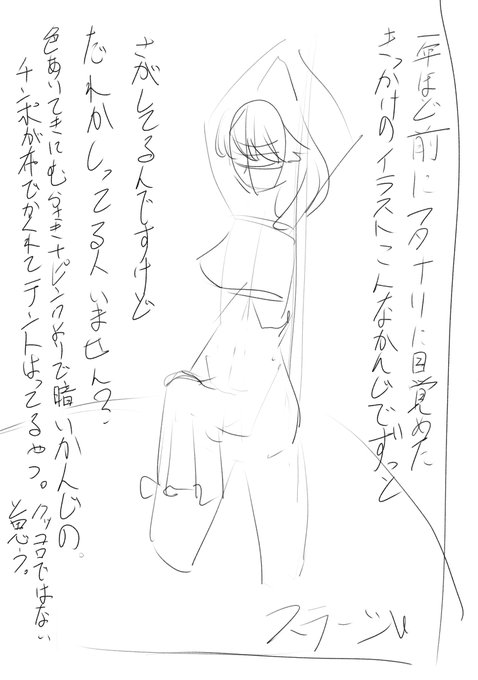 一年ほど前にフタナリに目覚めた
きっかけのイラストこんなかんじでずっと
さがしてるんですけど
だれかしってる人いません?
色あいてきにむらさきピンクよりで暗いかんじの。
チンポが布でかくれてテントはってるやつ。クッコロではない
と思う。